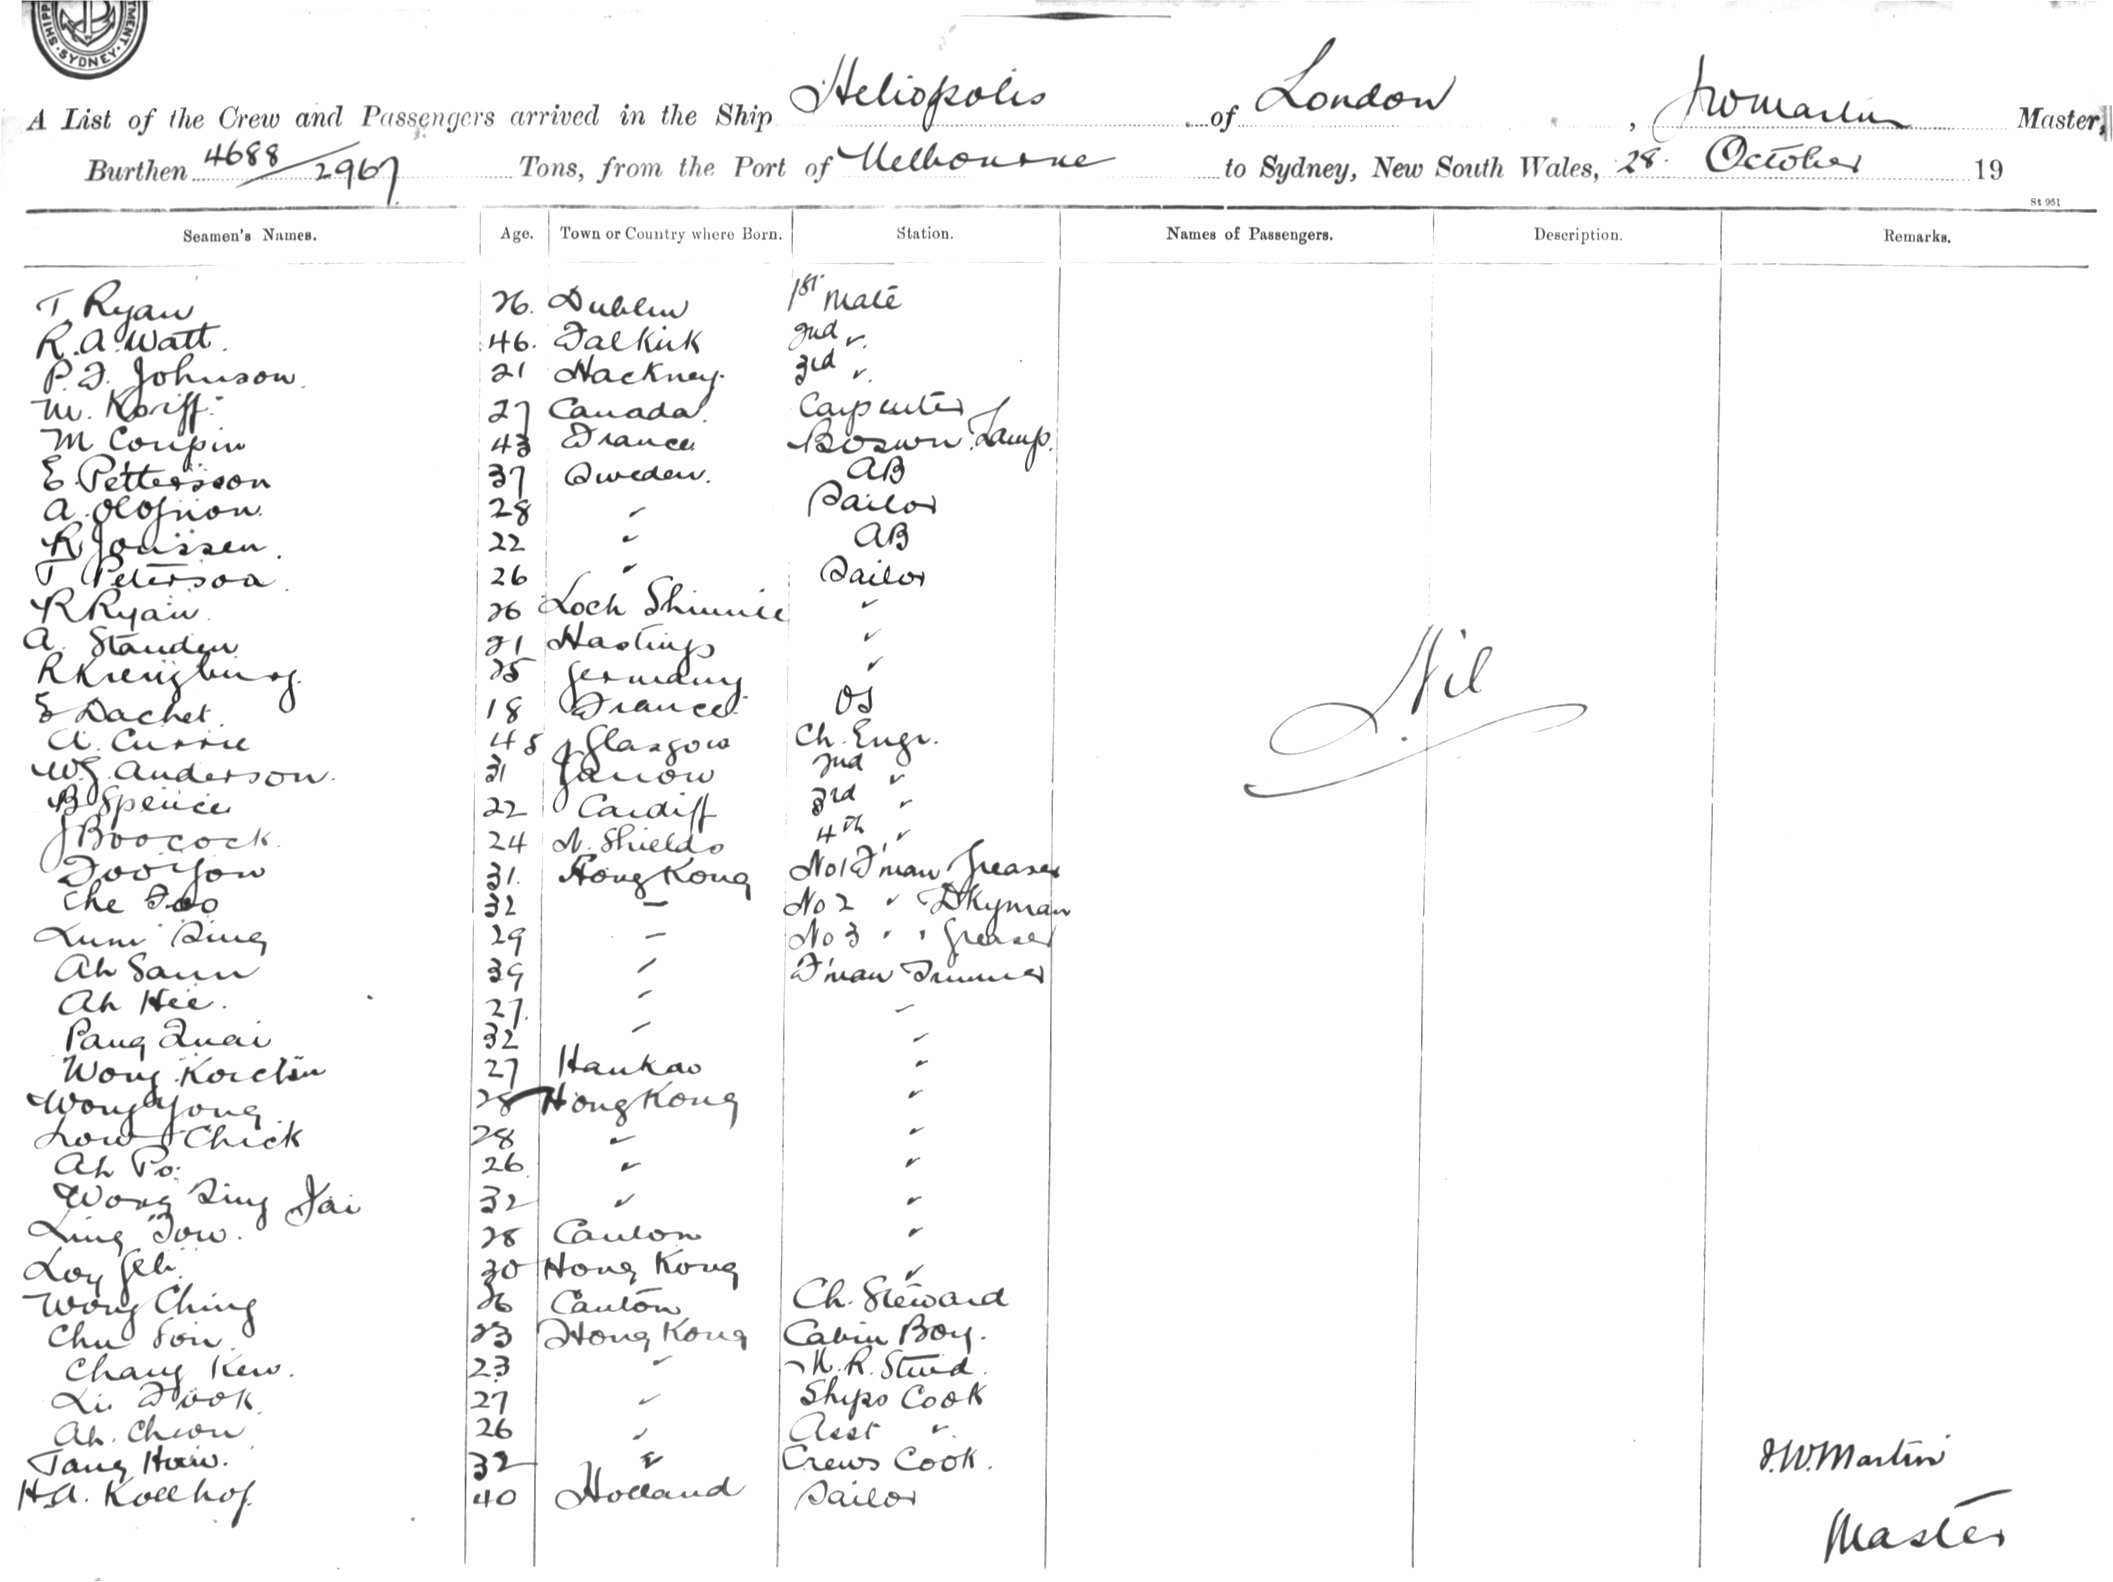 SYDNEY
A List of the Crew and Passengers arrived in the Ship Heliopolis of London, J W Martin Master,
Burthen 4688/2967 Tons, from the Port of Melbourne to Sydney, New South Wales, 28 October 19
St 951
Seamen's Names. Age. Town or Country where Born. Station. Names of Passengers. Description. Remarks.
T. Ryan 26. Dublin 1st Mate
R. A. Watt. 46. Falkirk 2nd "
P. F. Johnson. 21 Hackney. 3rd "
M. Koriff. 27 Canada. Carpenter
M Coupin 43 France Boswn. Lamp.
E. Petterson 37 Sweden. AB
A. Olofsson 28 " Sailor
R Jonssen. 22 " AB
T Peterson 26 " Sailor
R Ryan 26 Loch "
A. Standen 21 Hastings "
R 25 Germany "
E Dachet. 18 France. OS
A. Currie 45 Glasgow Ch. Engr.
W. G. Anderson. 31 Jarrow 2nd "
B Spence 22 Cardiff 3rd "
J Boocock 24 N. Shields 4th "
Foo Yow 31. Hong Kong No1 F'man Greaser
Che Foo 32 " No 2 " Dkyman
Lum Sing 29 " No 3 " " Greaser
Ah Sann 39 " F'man Trimmer
Ah Hee. 27. " "
Pang Quai 32 " "
Wong 27 Hankao "
Wong Yong 28 Hong Kong "
Low Chick 28 " "
Ah Po. 26 " "
Wong Sing Kai 32 " "
Ling Tow. 28 Canton "
Loy Geh. 30 Hong Kong "
Wong Ching 26 Canton Ch. Steward
Chu Son. 23 Hong Kong Cabin Boy.
Chang Kew. 23 " M. R. Stwd.
Li Fook. 27 " Ships Cook
Ah. Chion 26 " Asst "
Tang 32 " Crews Cook.
H. A. Kollhof. 40 Holland Sailor
Nil
J. W. Martin
Master